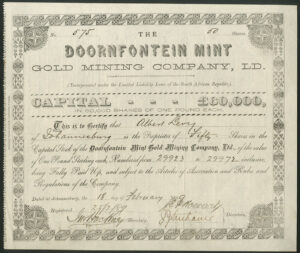 No. 575 THE 50 Shares
DOORNFONTEIN MINT
GOLD MINING COMPANY, LD.
(Incorporated under the Limited Liability Laws of the South African Republic.)
CAPITAL £60,000,
IN 60,000 SHARES OF ONE POUND EACH.
This is to Certify that Albert Levy
of Johannesburg is the Proprietor of Fifty Shares in the
Capital Stock of the Doornfontein Mint Gold Mining Company, Ltd., of the value
of One Pound Sterling each, Numbered from 29923 to 29972 inclusive,
being Fully Paid Up, and subject to the Articles of Association and Rules and
Regulations of the Company.
Dated at Johannesburg, the 18 of February
Registered
Secretary. Directors.